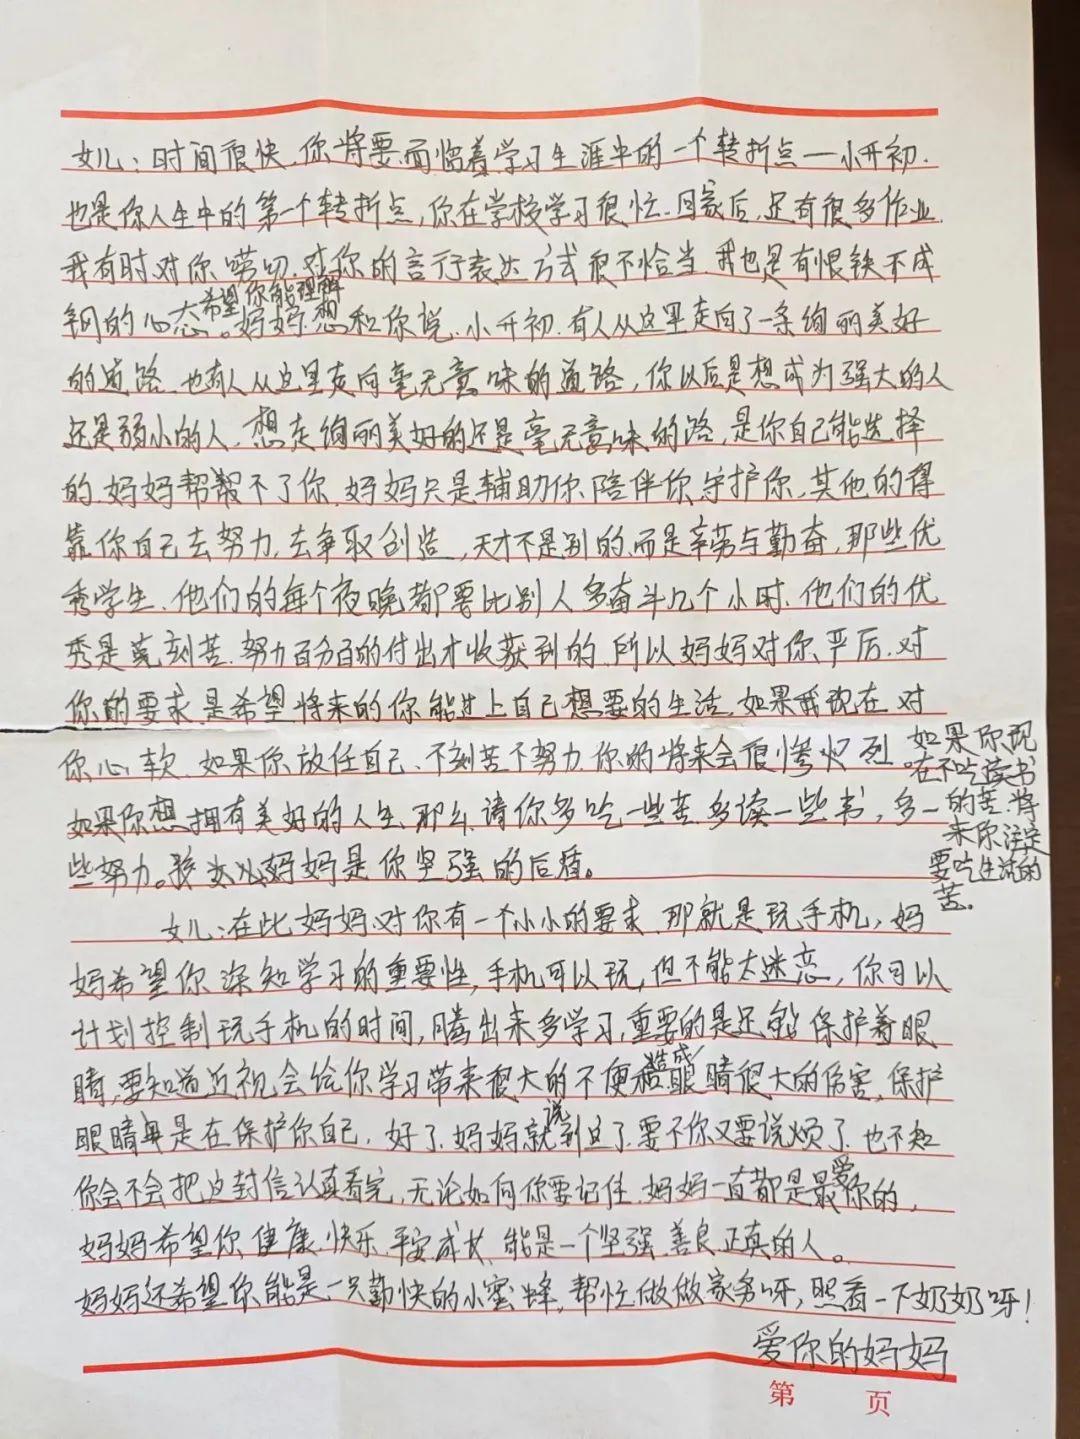 女儿：时间很快、你将要面临着学习生涯中的一个转折点—小升初.
也是你人生中的第一个转折点，你在学校学习很忙.回家后,还有很多作业.
我有时对你唠叨.对你的言行表达方式很不恰当.我也是有恨铁不成
希望你能理解
钢的心态。妈妈想和你说.小升初.有人从这里走向了一条绚丽美好
的道路.也有人从这里走向毫无意味的道路，你以后是想成为强大的人
还是弱小的人.想走绚丽美好的还是毫无意味的路，是你自己能选择
的.妈妈帮不了你.妈妈只是辅助你.陪伴你.守护你,其他的得
靠你自己去努力.去争取创造，天才不是别的、而是辛劳与勤奋，那些优
秀学生、他们的每个夜晚都要比别人多奋斗几个小时.他们的优
秀是克刻苦.努力百分百的付出才收获到的.所以妈妈对你严厉.对
你的要求.是希望将来的你能过上自己想要的生活.如果我现在对
你心软.如果你放任自己、不刻苦不努力.你的将来会很惨烈
如果你现
在不吃读书
的苦.将
来你注定
要吃生活的
苦.
如果你想拥有美好的人生、那么请你多吃一些苦.多读一些书，多一
些努力。妈妈是你坚强的后盾。
女儿:在此妈妈对你有一个小小的要求.那就是玩手机，妈
妈希望你深知学习的重要性,手机可以玩，但不能太迷恋，你可以
计划控制玩手机的时间,腾出来多学习,重要的是还能保护着眼
睛,要知道近视会给你学习带来很大的不便和造成眼睛很大的伤害,保护
眼睛是在保护你自己，好了.妈妈就说到这了.要不你又要说烦了.也不知
你会不会把这封信认真看完,无论如何你要记住.妈妈一直都是最爱你的,
妈妈希望你.健康.快乐.平安成长.能是一个坚强.善良.正真的人。
妈妈还希望你能是一只勤快的小蜜蜂,帮忙做做家务呀,照看一下奶奶呀!
爱你的妈妈
第 页